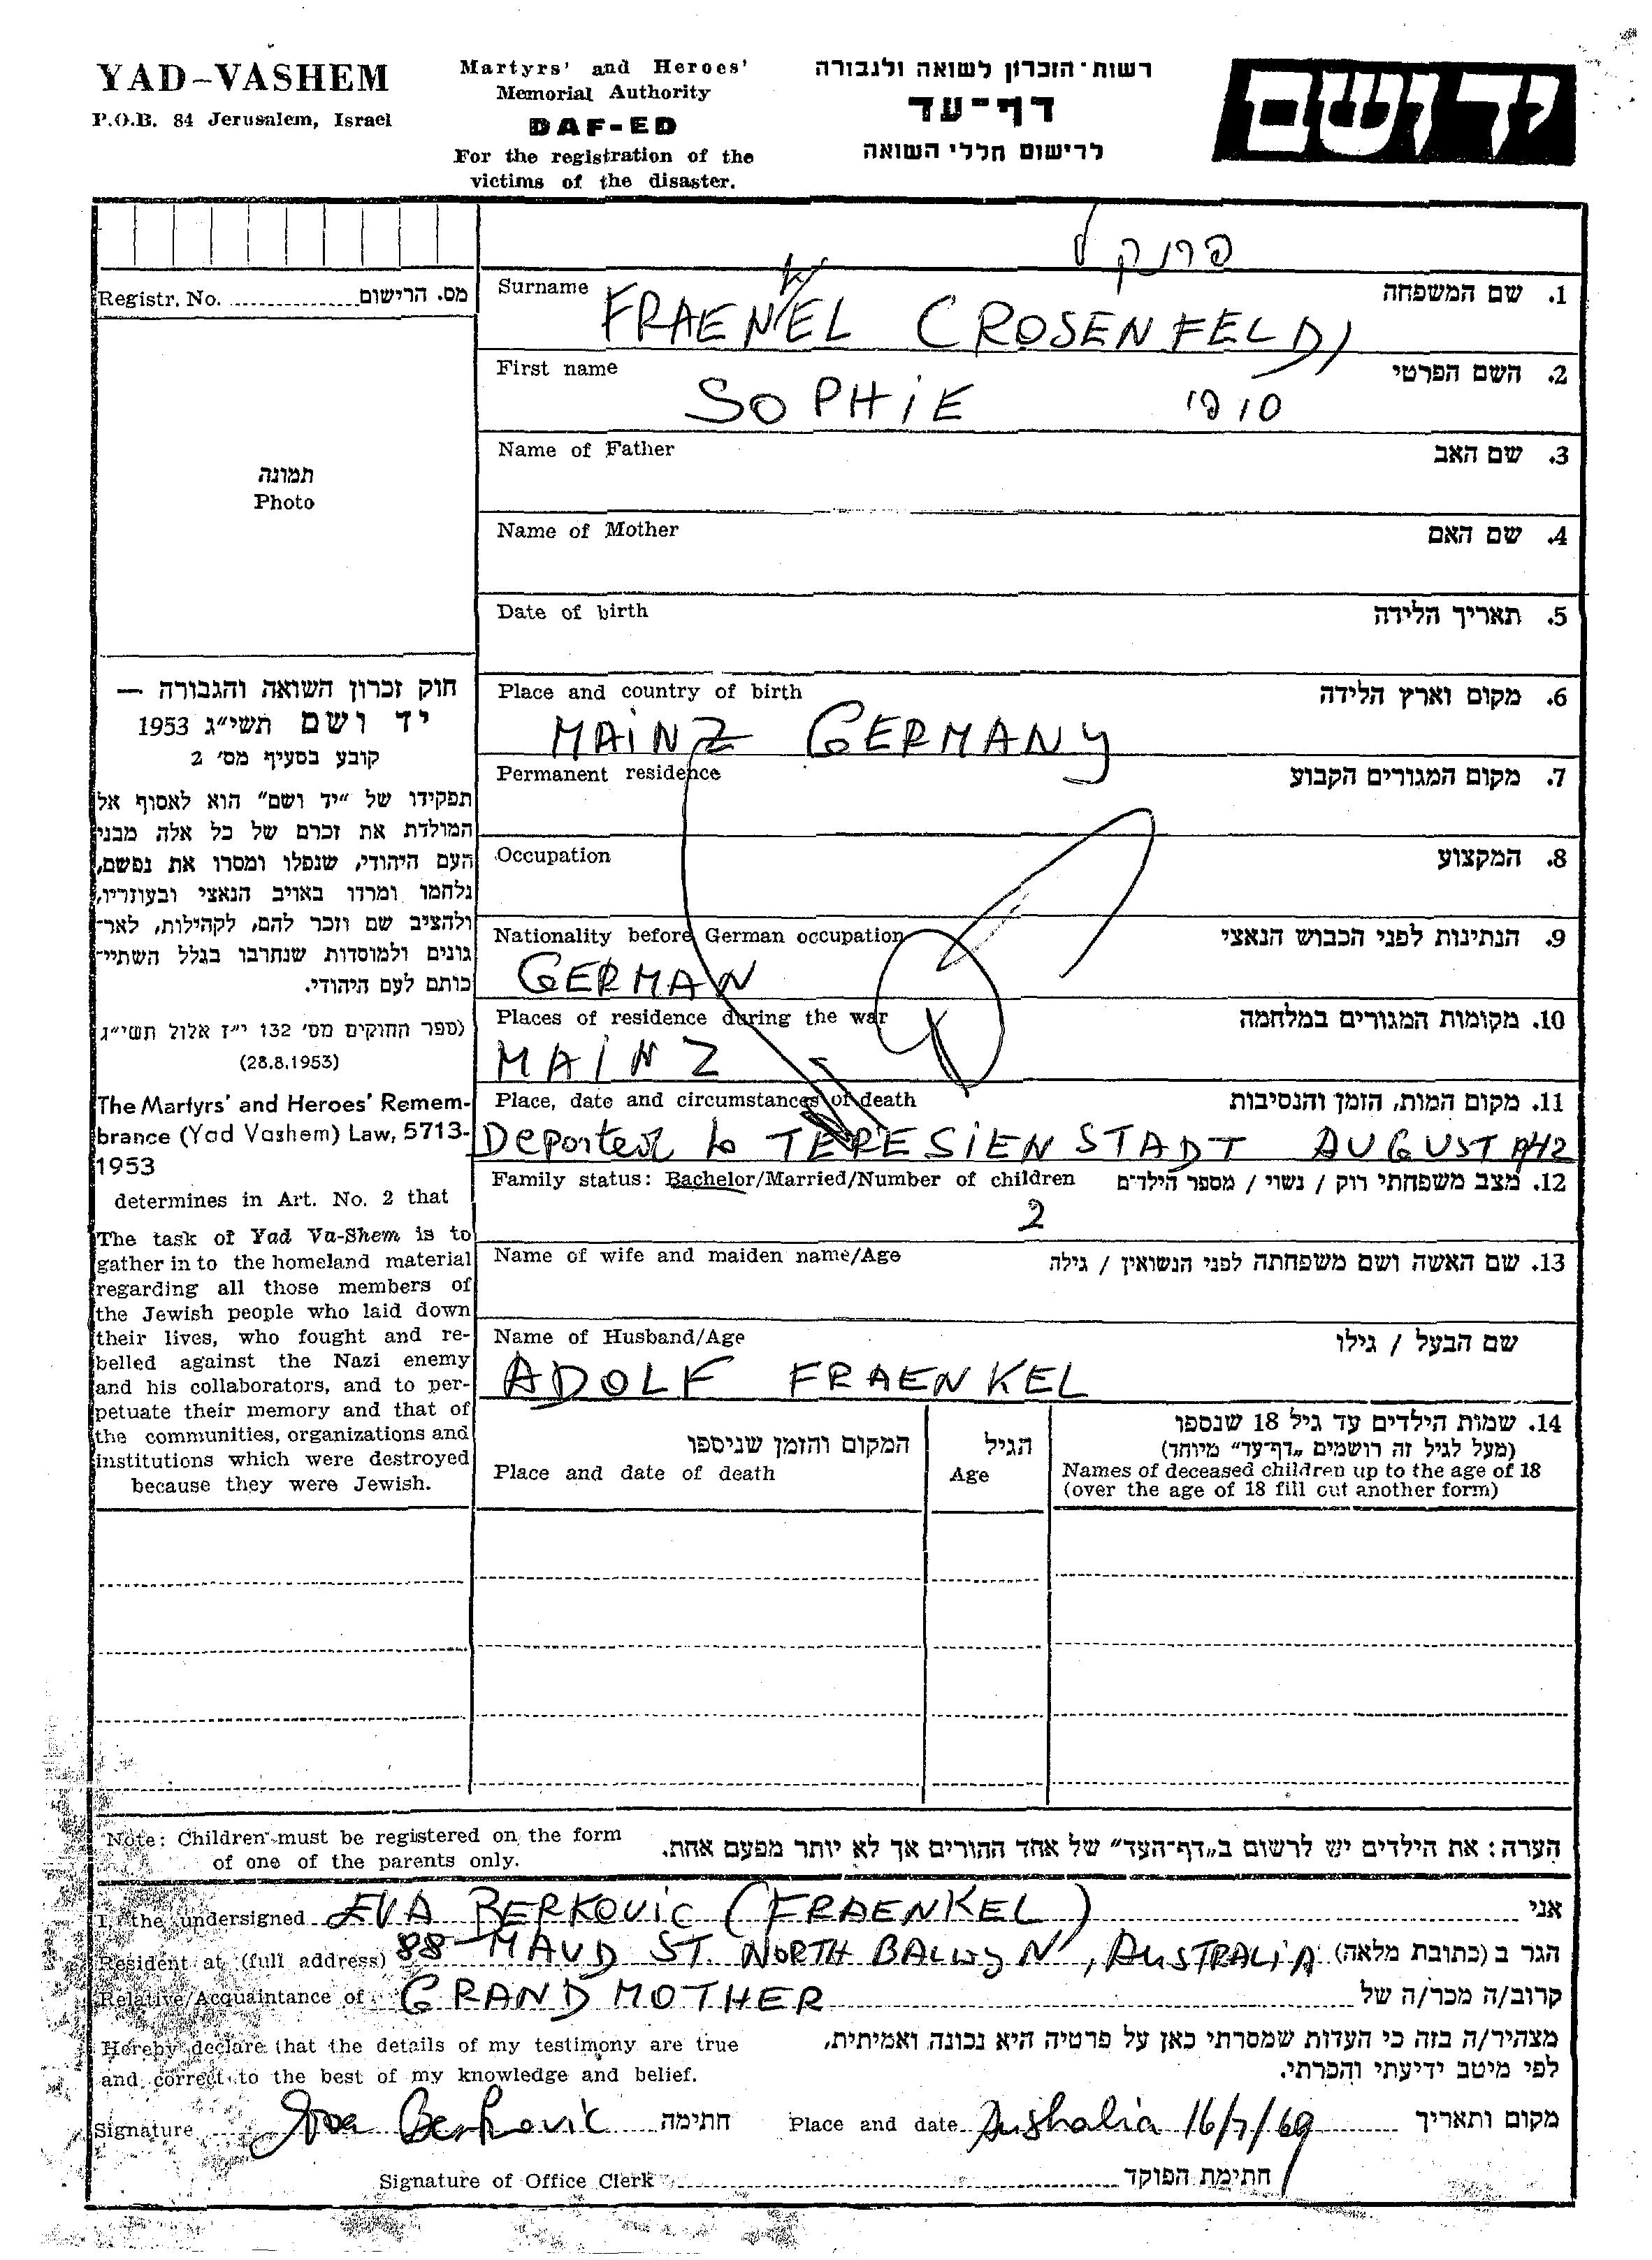 YAD-VASHEM
P.O.B. 84 Jerusalem, Israel
Martyrs' and Heroes'
Memorial Authority
DAF-ED
For the registration of the
victims of the disaster.
רשות-הזכרון לשואה ולגבורה
דף-עד
לרישום חללי השואה
יד ושם
Registr. No. מס. הרישום
תמונה
Photo
חוק זכרון השואה והגבורה —
יד ושם תשי"ג 1953
קובע בסעיף מס' 2
תפקידו של "יד ושם" הוא לאסוף אל
המולדת את זכרם של כל אלה מבני
העם היהודי, שנפלו ומסרו את נפשם,
נלחמו ומרדו באויב הנאצי ובעוזריו,
ולהציב שם וזכר להם, לקהילות, לאר-
גונים ולמוסדות שנחרבו בגלל השתיי-
כותם לעם היהודי.
(ספר החוקים מס' 132 י"ז אלול תשי"ג
(28.8.1953)
The Martyrs' and Heroes' Remem-
brance (Yad Vashem) Law, 5713-
1953
determines in Art. No. 2 that
The task of Yad Va-Shem is to
gather in to the homeland material
regarding all those members of
the Jewish people who laid down
their lives, who fought and re-
belled against the Nazi enemy
and his collaborators, and to per-
petuate their memory and that of
the communities, organizations and
institutions which were destroyed
because they were Jewish.
פרנקל
Surname 1. שם המשפחה
K
FRAENEL (ROSENFELD)
First name 2. השם הפרטי
SOPHIE סופי
Name of Father 3. שם האב
Name of Mother 4. שם האם
Date of birth 5. תאריך הלידה
Place and country of birth 6. מקום וארץ הלידה
MAINZ GERMANY
Permanent residence 7. מקום המגורים הקבוע
Occupation 8. המקצוע
Nationality before German occupation 9. הנתינות לפני הכבוש הנאצי
GERMAN
Places of residence during the war 10. מקומות המגורים במלחמה
MAINZ
Place, date and circumstances of death 11. מקום המות, הזמן והנסיבות
Deported to TERESIENSTADT AUGUST 1942
Family status: Bachelor/Married/Number of children 12. מצב משפחתי רוק / נשוי / מספר הילדים
2
Name of wife and maiden name/Age 13. שם האשה ושם משפחתה לפני הנשואין / גילה
Name of Husband/Age שם הבעל / גילו
ADOLF FRAENKEL
המקום והזמן שניספו
Place and date of death
הגיל
Age
14. שמות הילדים עד גיל 18 שנספו
(מעל לגיל זה רושמים "דף-עד" מיוחד)
Names of deceased children up to the age of 18
(over the age of 18 fill out another form)
Note: Children must be registered on the form
of one of the parents only.
הערה: את הילדים יש לרשום ב"דף-העד" של אחד ההורים אך לא יותר מפעם אחת.
I, the undersigned EVA BERKOVIC (FRAENKEL) אני
Resident at (full address) 88 MAUD ST. NORTH BALWYN, AUSTRALIA הגר ב (כתובת מלאה)
Relative/Acquaintance of GRANDMOTHER קרוב/ה מכר/ה של
Hereby declare that the details of my testimony are true
and correct to the best of my knowledge and belief.
מצהיר/ה בזה כי העדות שמסרתי כאן על פרטיה היא נכונה ואמיתית,
לפי מיטב ידיעתי והכרתי.
Signature Eva Berkovic חתימה Place and date Australia 16/7/69 מקום ותאריך
Signature of Office Clerk חתימת הפוקד